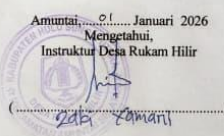 Amuntai, 01 Januari 2026
Mengetahui,
Instruktur Desa Rukam Hilir
(
zaki Yamani